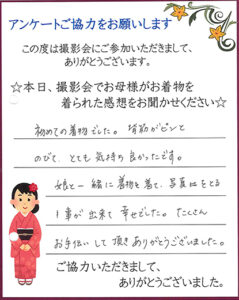 アンケートご協力をお願いします
この度は撮影会にご参加いただきまして、
ありがとうございます。
☆本日、撮影会でお母様がお着物を
着られた感想をお聞かせください☆
初めての着物でした。背筋がピンと
のびて、とても気持ち良かったです。
娘と一緒に着物を着て、写真をとる
事が出来て幸せでした。たくさん
お手伝いして頂きありがとうございました。
ご協力いただきまして、
ありがとうございました。